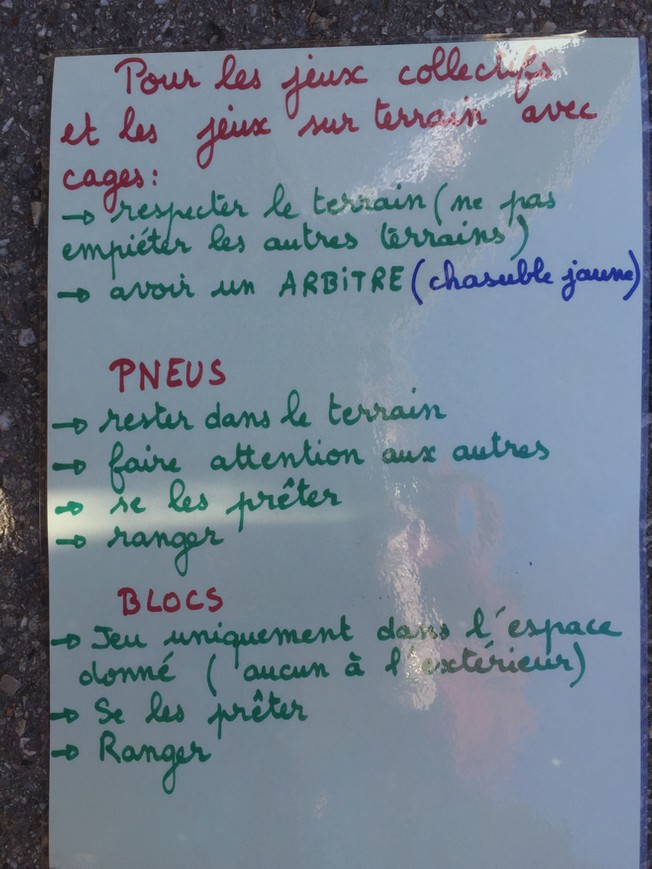 Pour les jeux collectifs
et les jeux sur terrain avec
cages:
→ respecter le terrain (ne pas
empiéter les autres terrains)
→ avoir un ARBITRE (chasuble jaune)
PNEUS
→ rester dans le terrain
→ faire attention aux autres
→ se les prêter
→ ranger
BLOCS
→ Jeu uniquement dans l'espace
donné (aucun à l'extérieur)
→ Se les prêter
→ Ranger